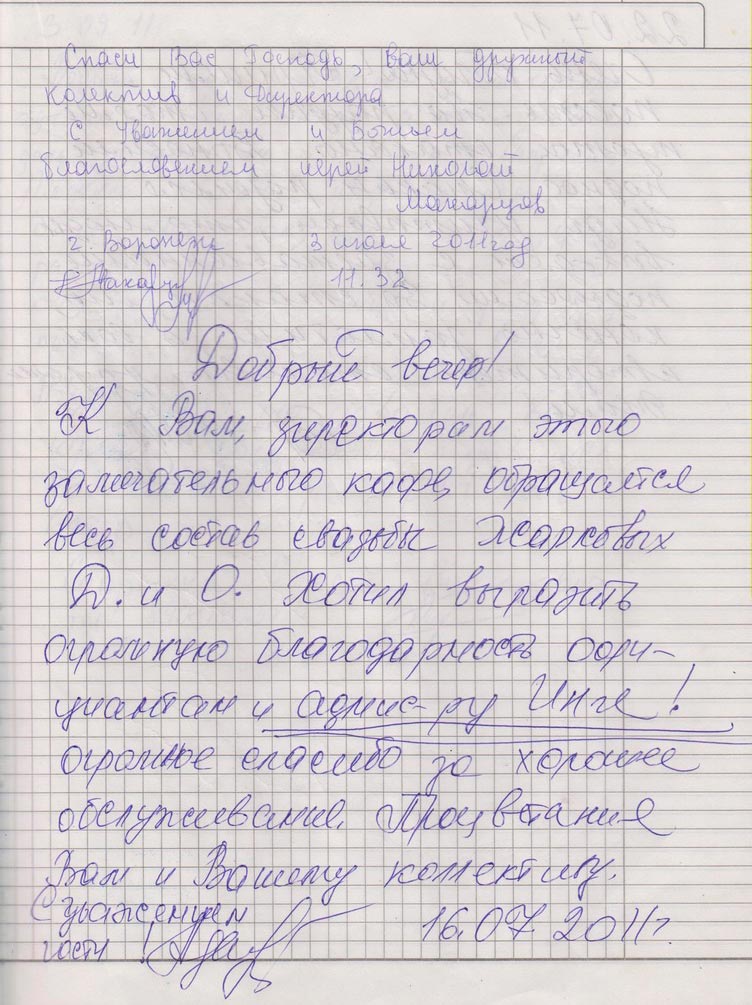 Спаси Вас Господь, ваш дружный
колектив и Директора
С уважением и Божьем
благословением иерей Николай
Макарцов
г. Воронеж 3 июля 2011 год
11.32
Добрый вечер!
К Вам, директорам этого
замечательного кафе, обращается
весь состав свадьбы Жарковых
Д. и О. Хотим выразить
огромную благодарность офи-
циантам и админ-ру Инге!
огромное спасибо за хорошее
обслуживание. Процветания
Вам и Вашему коллективу.
С уважением
гости! 16.07.2011г.